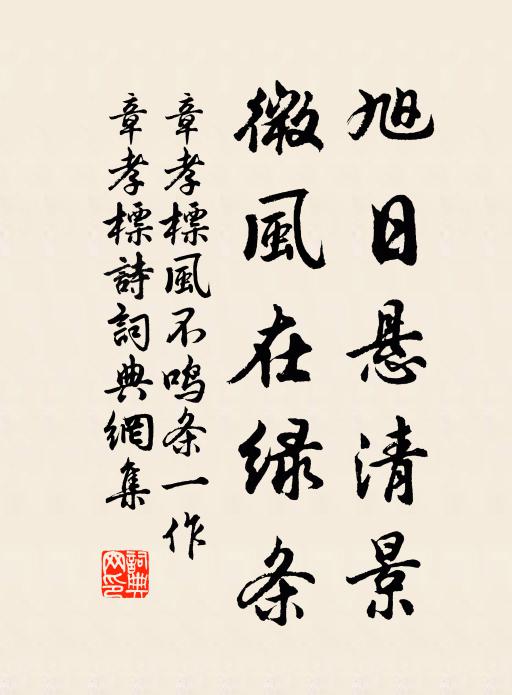 旭日悬清景
微風在緑条
章孝標風不鸣条一作
章孝標詩詞典網集
詞典
网印